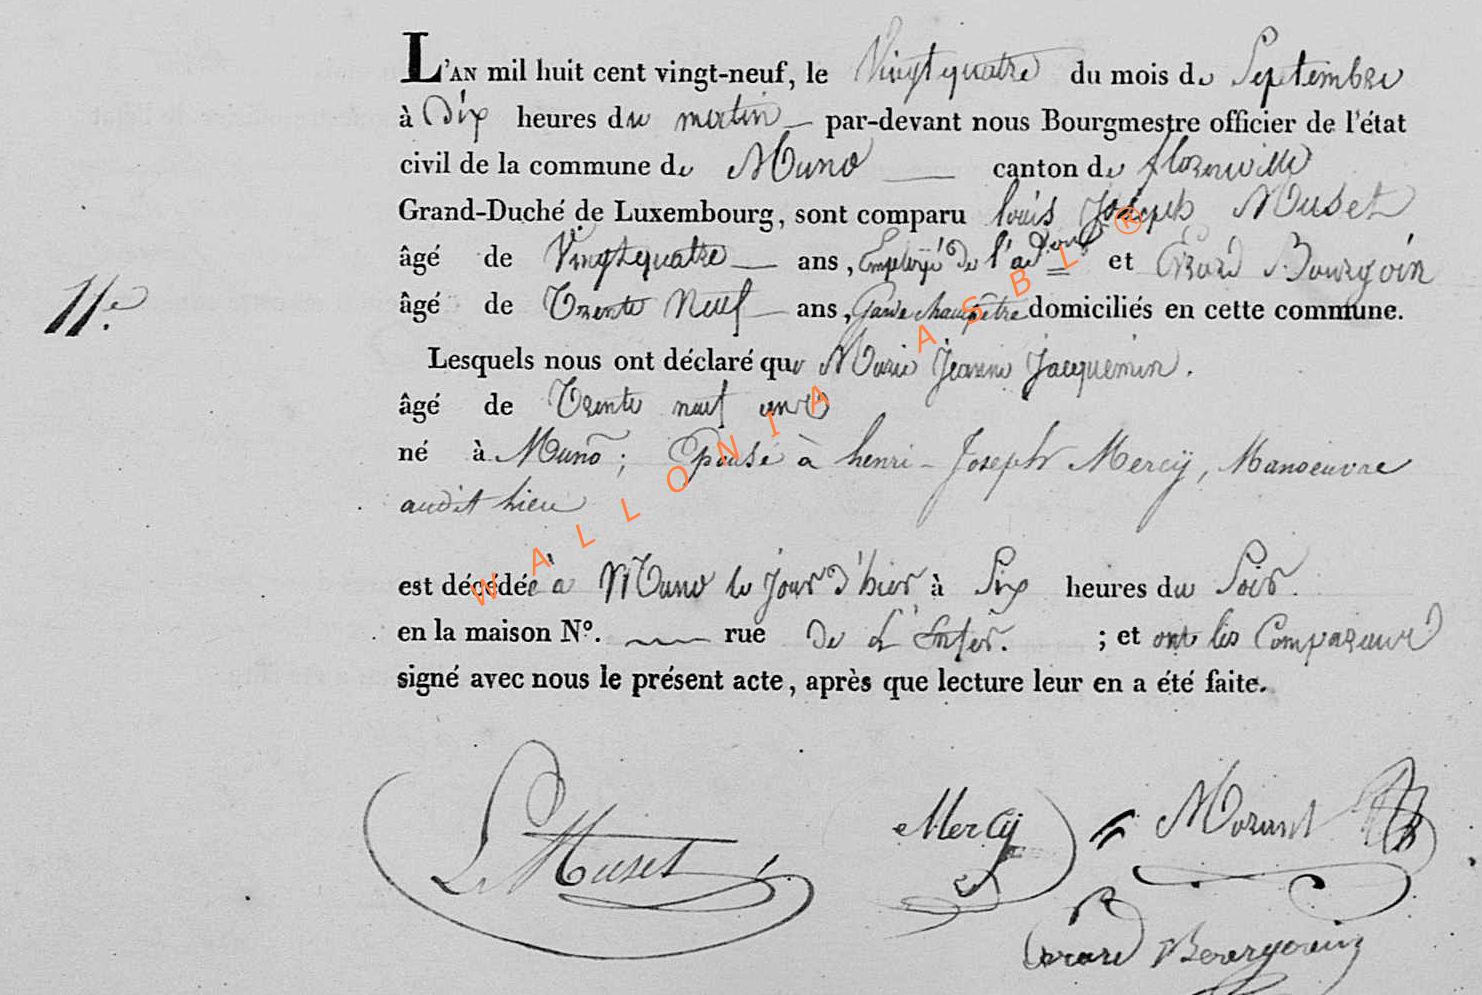 L'AN mil huit cent vingt-neuf, le Vingtquatre du mois de Septembre
à Dix heures du matin par-devant nous Bourgmestre officier de l'état
civil de la commune de Muno canton de florenville
Grand-Duché de Luxembourg, sont comparu louis Joseph Muset
âgé de Vingtquatre ans, Employé De l'ad.on et Erard Bourgoin
11.e
âgé de Trente Neuf ans, Garde champêtre domiciliés en cette commune.
Lesquels nous ont déclaré que Marie Jeanne Jacquemin.
âgé de Trente neuf ans
né à Muno; Epouse à henri-Joseph Mercÿ, Manoeuvre
audit lieu
est décédée à Muno le jour D'hier à Six heures du Soir.
en la maison N°. rue De L'Enfer. ; et ont les Comparants
signé avec nous le présent acte, après que lecture leur en a été faite.
L Muset Mercÿ Morant
Erard Bourgoin
WALLONIA ASBL ®